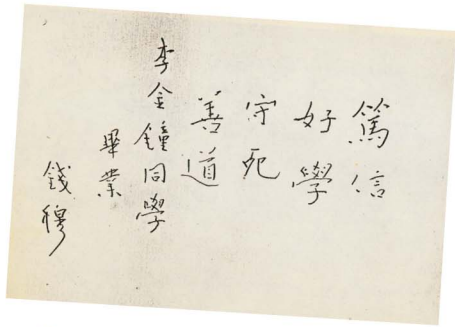 篤信
好學
守死
善道
李金鐘同學
畢業
錢穆